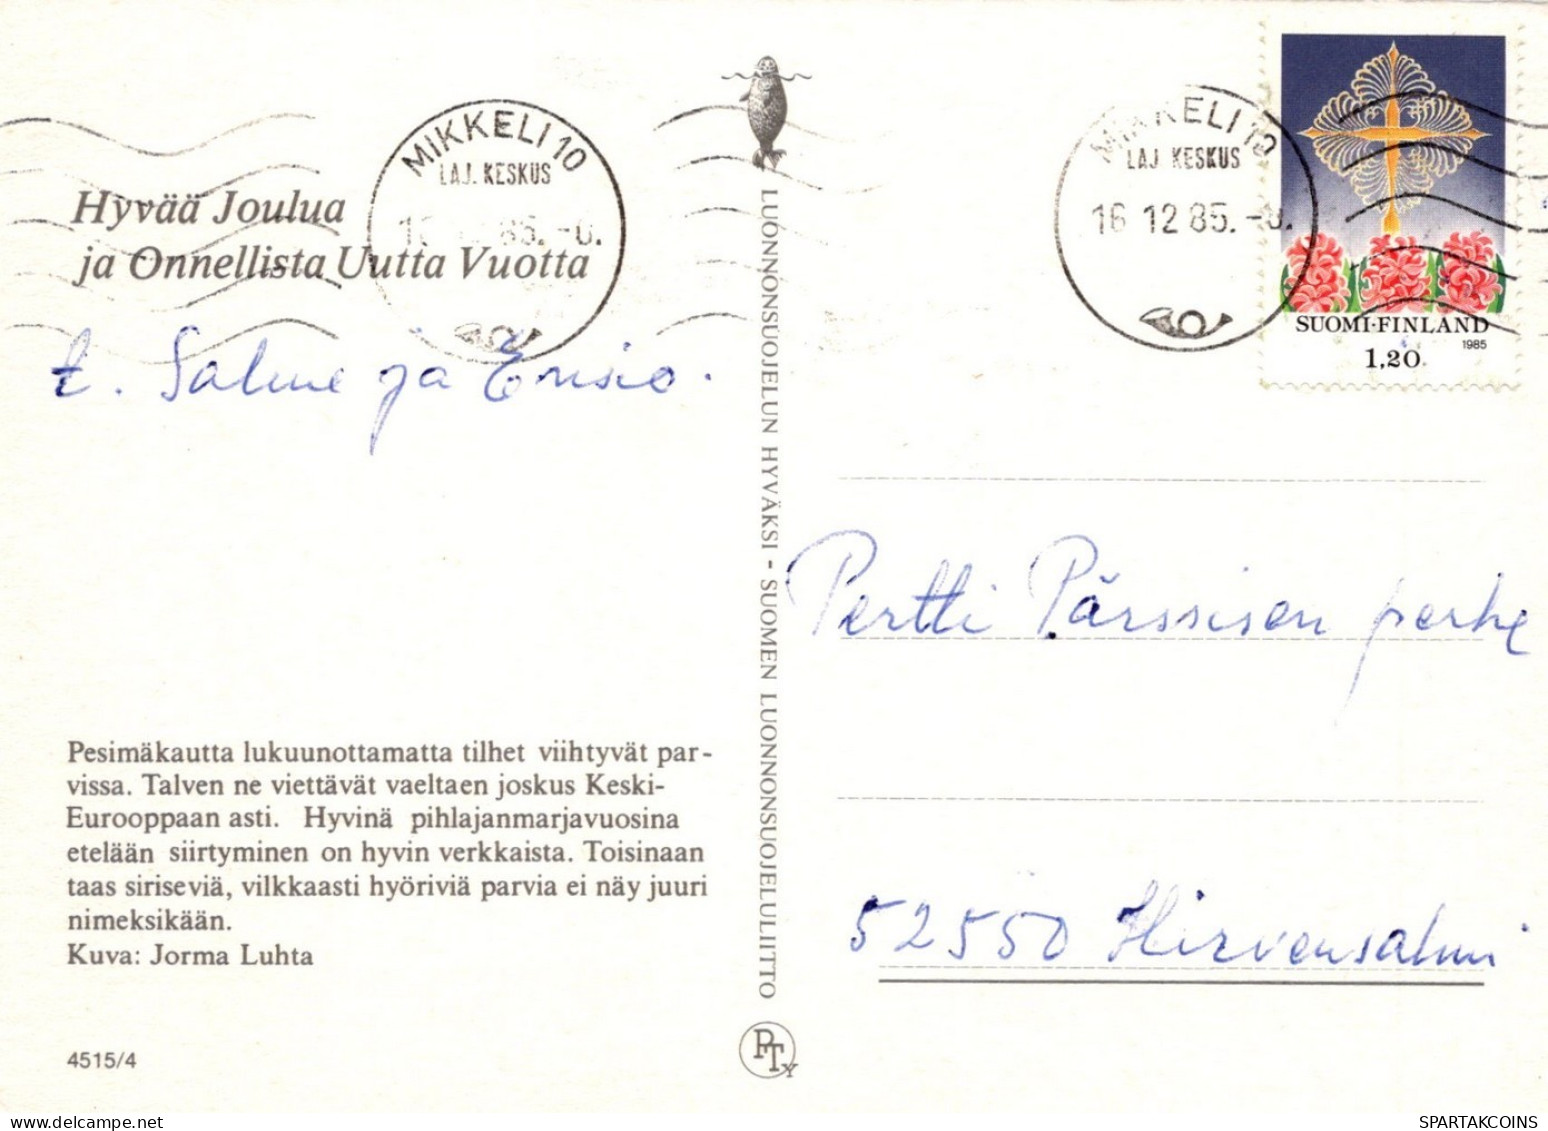 MIKKELI 10
LAJ. KESKUS
85. -0.
MIKKELI 10
LAJ. KESKUS
16 12 85. -0.
SUOMI-FINLAND
1985
1,20
Hyvää Joulua
ja Onnellista Uutta Vuotta
t. Salme ja Ensio.
LUONNONSUOJELUN HYVÄKSI - SUOMEN LUONNONSUOJELULIITTO
Pertti Pärssisen perhe
52550 Hirvensalmi
Pesimäkautta lukuunottamatta tilhet viihtyvät par-
vissa. Talven ne viettävät vaeltaen joskus Keski-
Eurooppaan asti. Hyvinä pihlajanmarjavuosina
etelään siirtyminen on hyvin verkkaista. Toisinaan
taas siriseviä, vilkkaasti hyöriviä parvia ei näy juuri
nimeksikään.
Kuva: Jorma Luhta
4515/4
PTY
SPARTAKCOINS